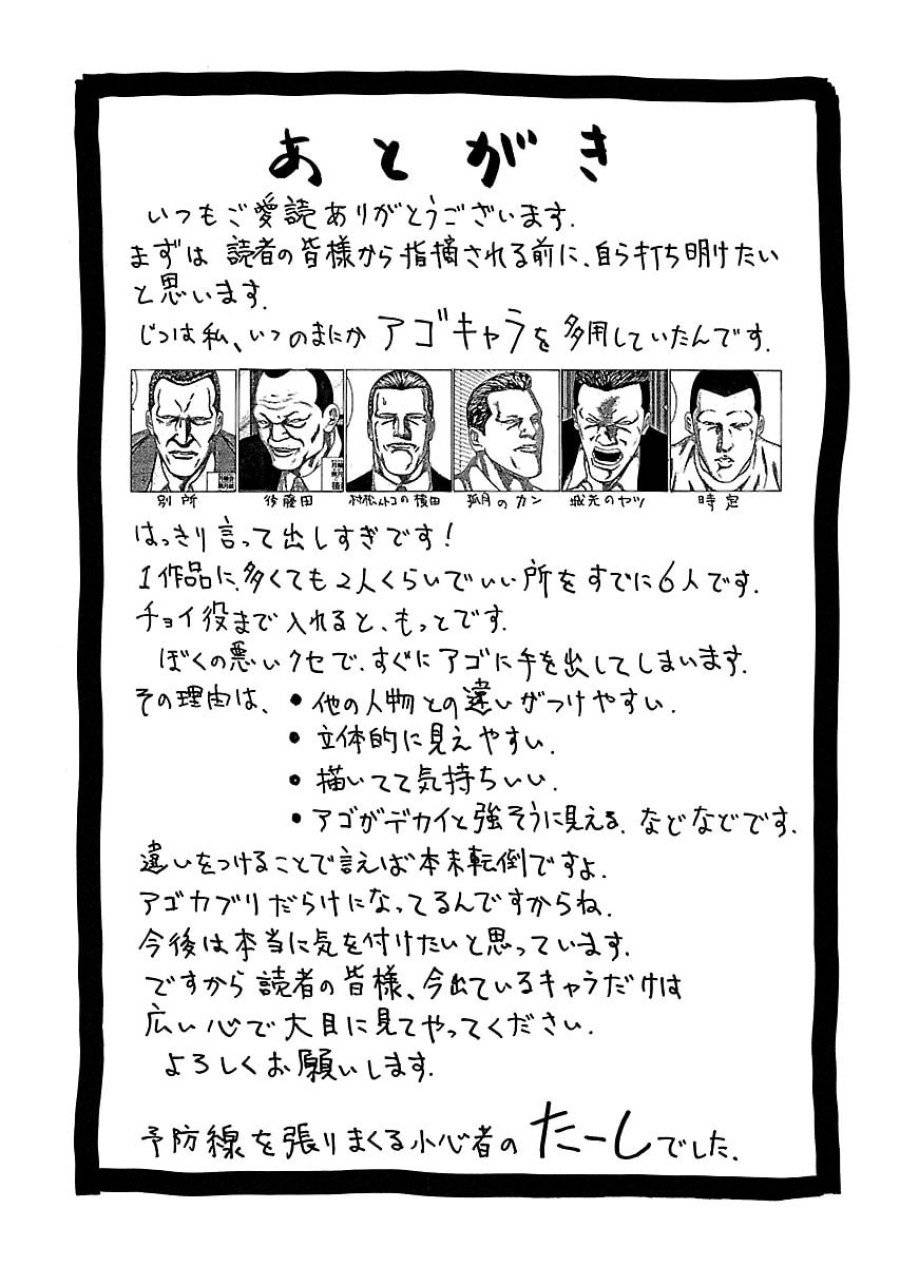 あとがき
いつもご愛読ありがとうございます.
まずは読者の皆様から指摘される前に、自ら打ち明けたい
と思います.
じつは私、いつのまにかアゴキャラを多用していたんです.
別所 後藤田 村松ルトコの横田 孤月のカン 城元のヤツ 時定
はっきり言って出しすぎです!
1作品に、多くても2人くらいでいい所をすでに6人です.
チョイ役まで入れると、もっとです.
ぼくの悪いクセで、すぐにアゴに手を出してしまいます.
その理由は、 •他の人物との違いがつけやすい.
•立体的に見えやすい.
•描いてて気持ちいい.
•アゴがデカイと強そうに見える. などなどです.
違いをつけることで言えば本末転倒ですよ.
アゴカブリだらけになってるんですからね.
今後は本当に気を付けたいと思っています.
ですから読者の皆様、今出ているキャラだけは
広い心で大目に見てやってください.
よろしくお願いします.
予防線を張りまくる小心者のたーしでした.